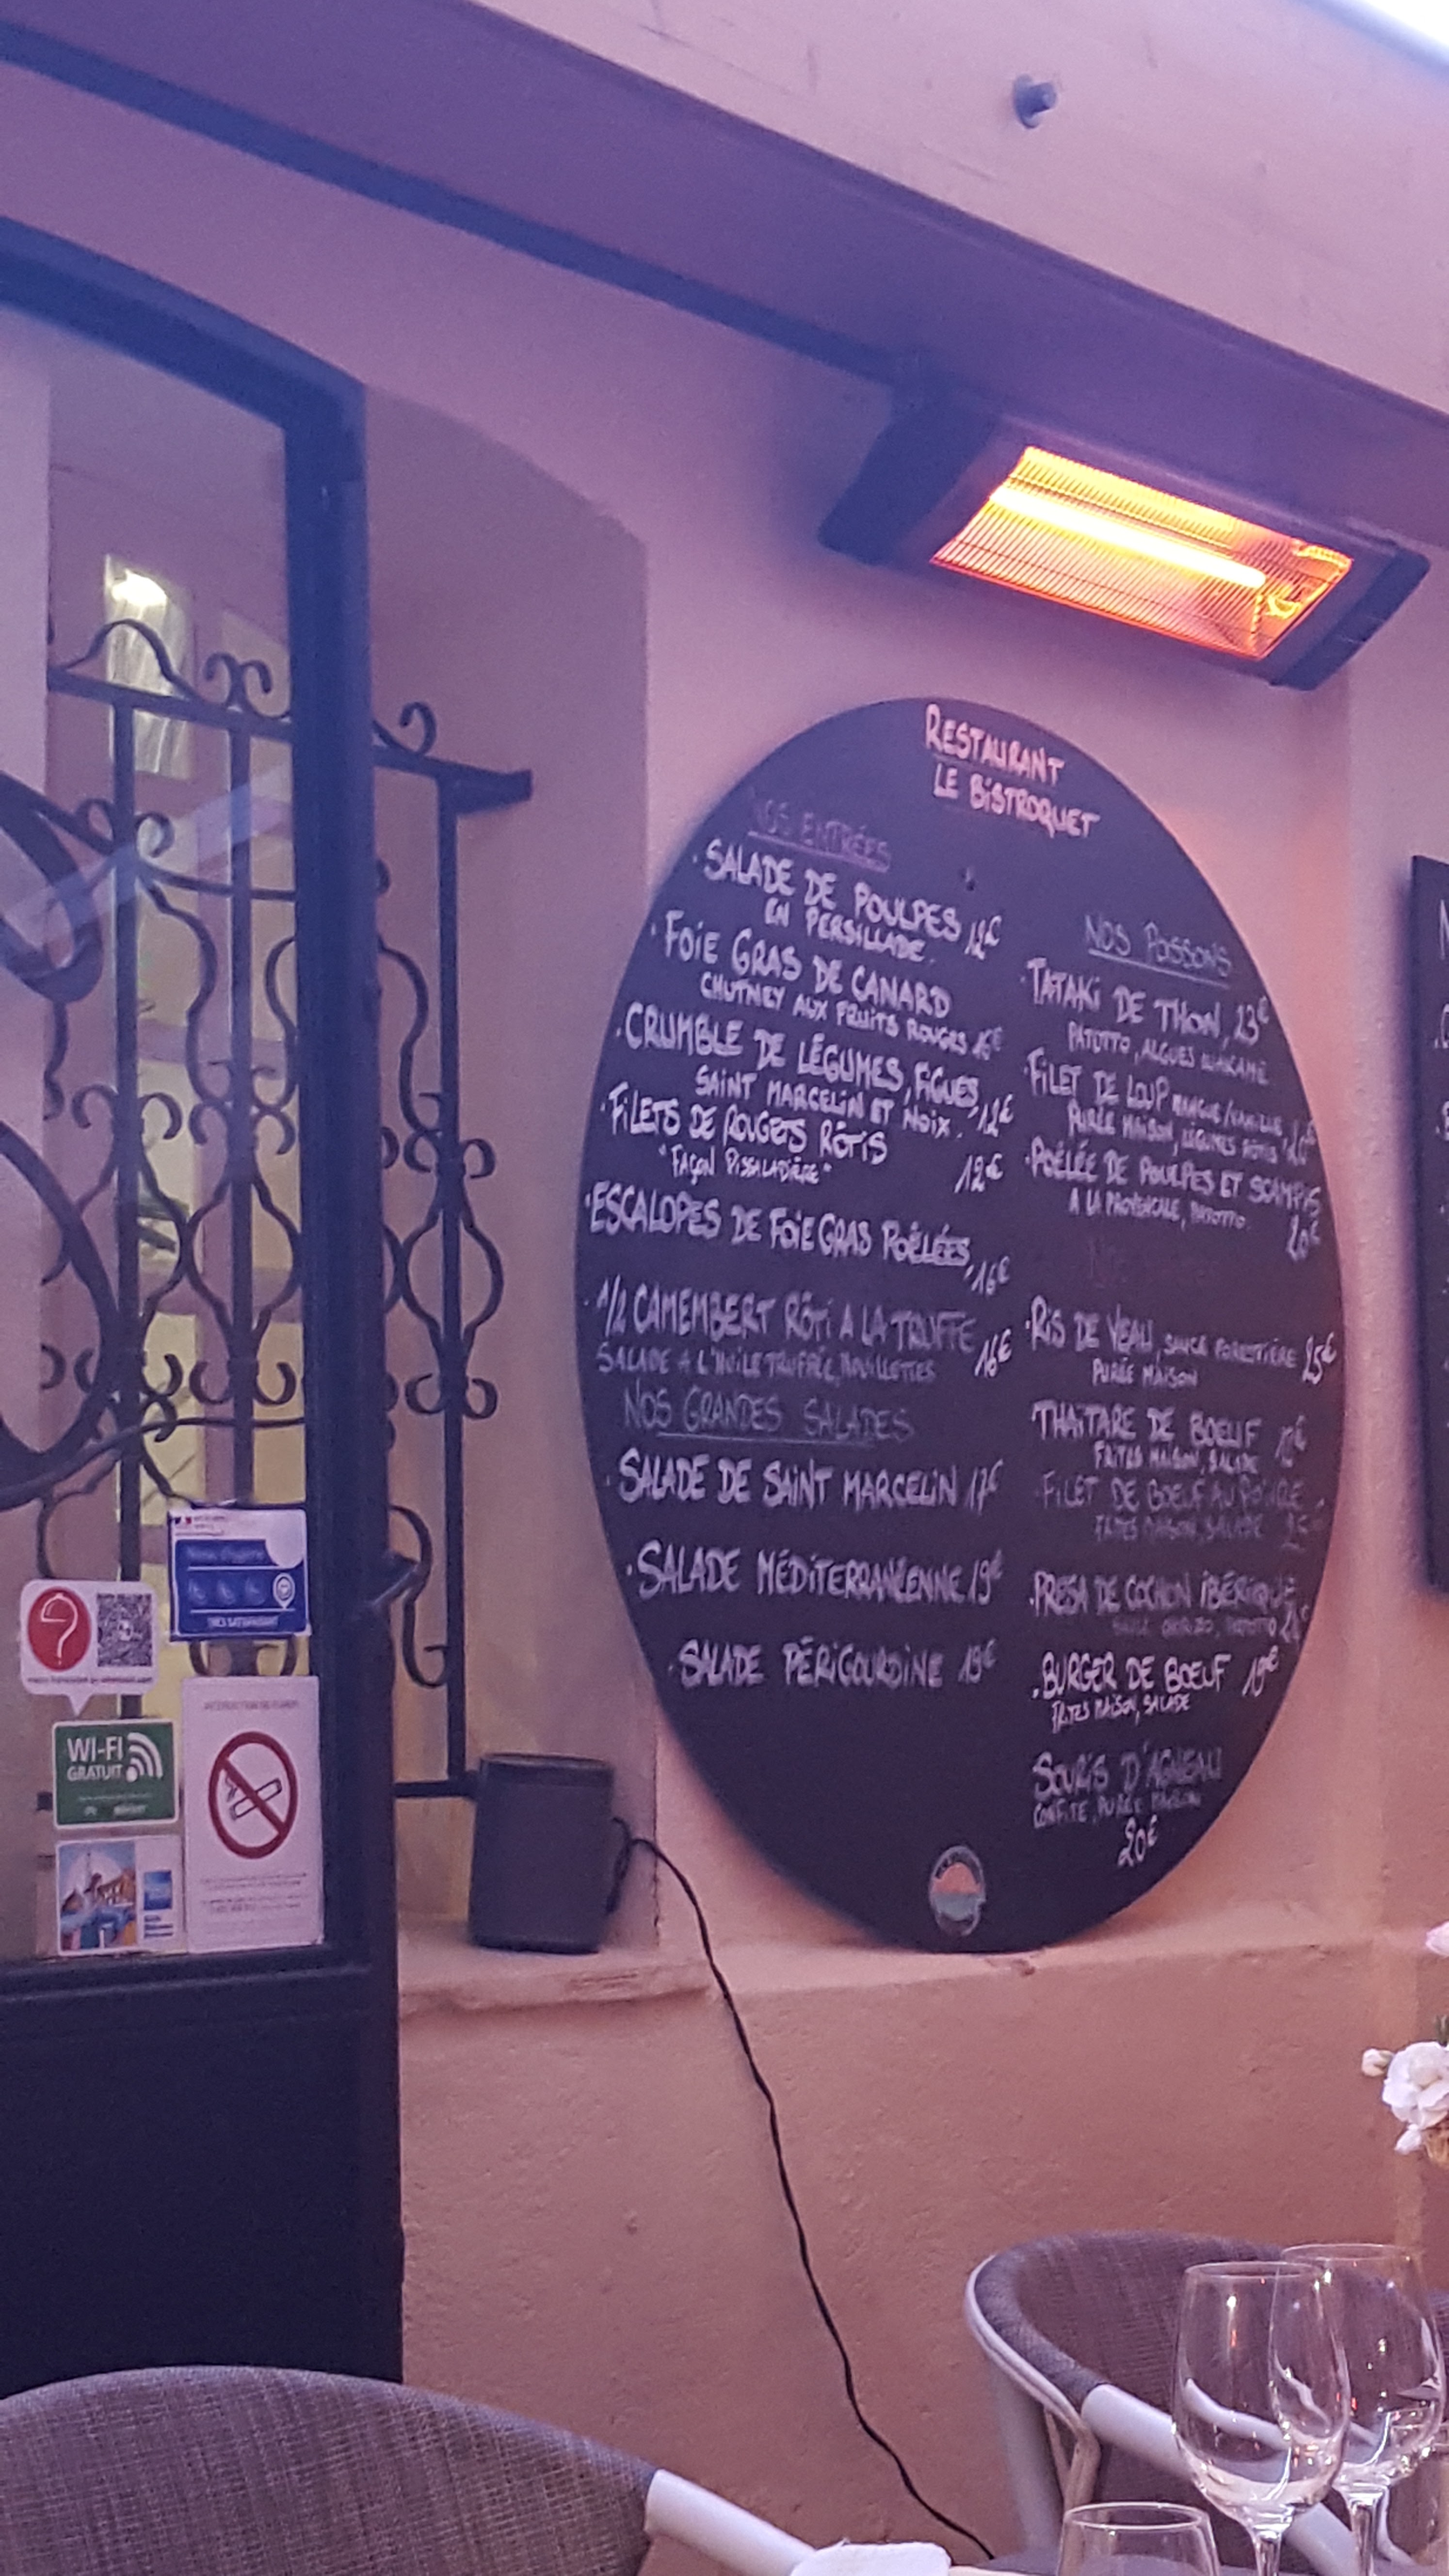 RESTAURANT
LE BISTROQUET
NOS ENTRÉES
· SALADE DE POULPES 12€
EN PERSILLADE.
· FOIE GRAS DE CANARD
CHUTNEY AUX FRUITS ROUGES
· CRUMBLE DE LÉGUMES, FIGUES,
SAINT MARCELIN ET NOIX. 12€
· FILETS DE ROUGETS RÔTIS
"FAÇON PISSALADIÈRE" 12€
· ESCALOPES DE FOIE GRAS POÊLÉES, 16€
· 1/2 CAMEMBERT RÔTI A LA TRUFFE
SALADE A L'HUILE TRUFFÉE, MOUILLETTES 16€
NOS GRANDES SALADES
SALADE DE SAINT MARCELIN 17€
· SALADE MÉDITERRANÉENNE 19€
· SALADE PÉRIGOURDINE 19€
NOS POISSONS
· TATAKI DE THON, 23€
RISOTTO, ALGUES WAKAMÉ
· FILET DE LOUP MANGUE/VANILLE
PURÉE MAISON, LÉGUMES RÔTIS
· POÊLÉE DE POULPES ET SCAMPIS
A LA PROVENÇALE, RISOTTO.
20€
· RIS DE VEAU, SAUCE FORESTIÈRE 25€
PURÉE MAISON
THAÏTARE DE BOEUF
FRITES MAISON, SALADE
· FILET DE BOEUF AU POIVRE
FRITES MAISON, SALADE
· PRESA DE COCHON IBÉRIQUE
· BURGER DE BOEUF 19€
FRITES MAISON, SALADE
SOURIS D'AGNEAU
CONFITE, PURÉE MAISON
20€
TRÈS SATISFAISANT
WI-FI
GRATUIT
INTERDICTION DE FUMER